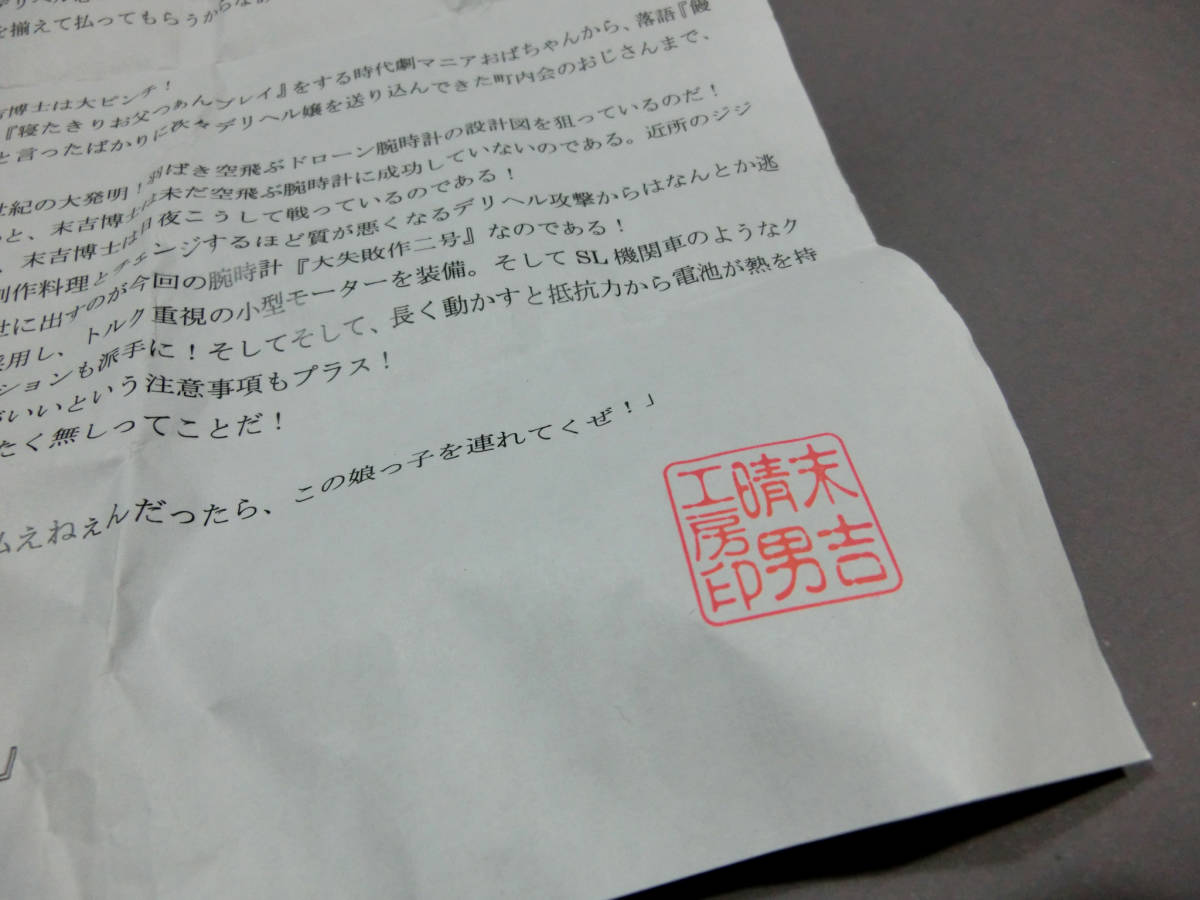 を揃えて払ってもらうからなあ
吉博士は大ピンチ！
『寝たきりお父つぁんプレイ』をする時代劇マニアおばちゃんから、落語『饅
と言ったばかりに次々デリヘル嬢を送り込んできた町内会のおじさんまで、
世紀の大発明！羽ばき空飛ぶドローン腕時計の設計図を狙っているのだ！
と、末吉博士は未だ空飛ぶ腕時計に成功していないのである。近所のジジ
、末吉博士は日夜こうして戦っているのである！
創作料理とチェンジするほど質が悪くなるデリヘル攻撃からはなんとか逃
世に出すのが今回の腕時計『大失敗作二号』なのである！
採用し、トルク重視の小型モーターを装備。そしてSL機関車のようなク
ションも派手に！そしてそして、長く動かすと抵抗力から電池が熱を持
がいいという注意事項もプラス！
たく無しってことだ！
払えねぇんだったら、この娘っ子を連れてくぜ！」
末吉
晴男
工房印
』